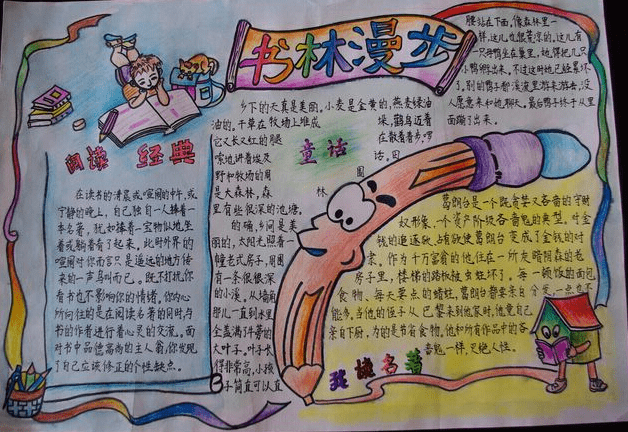 书林漫步
阅读 经典
在读书的清晨或喧闹的中午,或
宁静的晚上,自己独自一人捧着一
本名著,犹如捧着一宝物似地,坐
着或躺着看了起来,此时外界的
喧闹对你而言只是遥远的地方传
来的一声鸟叫而已。既不打扰你
看书也不影响你的情绪,你内心
所向往的是在阅读名著的同时与
书的作者进行着心灵的交流。面
对书中品德高尚的主人翁,你发现
了自己应该修正的个性缺点。
童话
乡下的天真是美丽。小麦是金黄的,燕麦绿油
油的。干草在牧场上堆成
垛,鹳鸟迈着
它又长又红的腿
在散着步,啰
嗦地讲着埃及
话。田
野和牧场的周
围
是大森林,森
林
里有些很深的池塘。
的确,乡间是美
丽的,太阳光照着一
幢老式房子,周围
有一条很深
的小溪。从墙角
那儿一直到水里,
全盖满了牛蒡的
大叶子。叶子长
得非常高,小孩
子简直可以直
腰站在下面,像森林里一
样,这儿也很荒凉的。这儿有
一只母鸭坐在巢里,她得把几只
小鸭孵出来。不过这时她已经累坏
了。别的鸭子都在溪流里游来游去,没
人愿意来和她聊天。最后鸭子终于从里
面蹦了出来。
葛朗台是一个既贪婪又吝啬的守财
奴形象,一个资产阶级吝啬鬼的典型。对金
钱的追逐欲、占有欲使葛朗台变成了金钱的对
象,作为千万富翁的他,住在一所灰暗阴森的老
房子里,楼梯的踏板被虫蛀坏了。每一顿饭的面包、
食物、每天要点的蜡烛,葛朗台都要亲自分发一点也不
能多,当他的侄子从巴黎来到他家时,他竟自己
亲自下厨,为的是节省食物。他和所有作品中的吝
啬鬼一样,灭绝人性。
我读名著